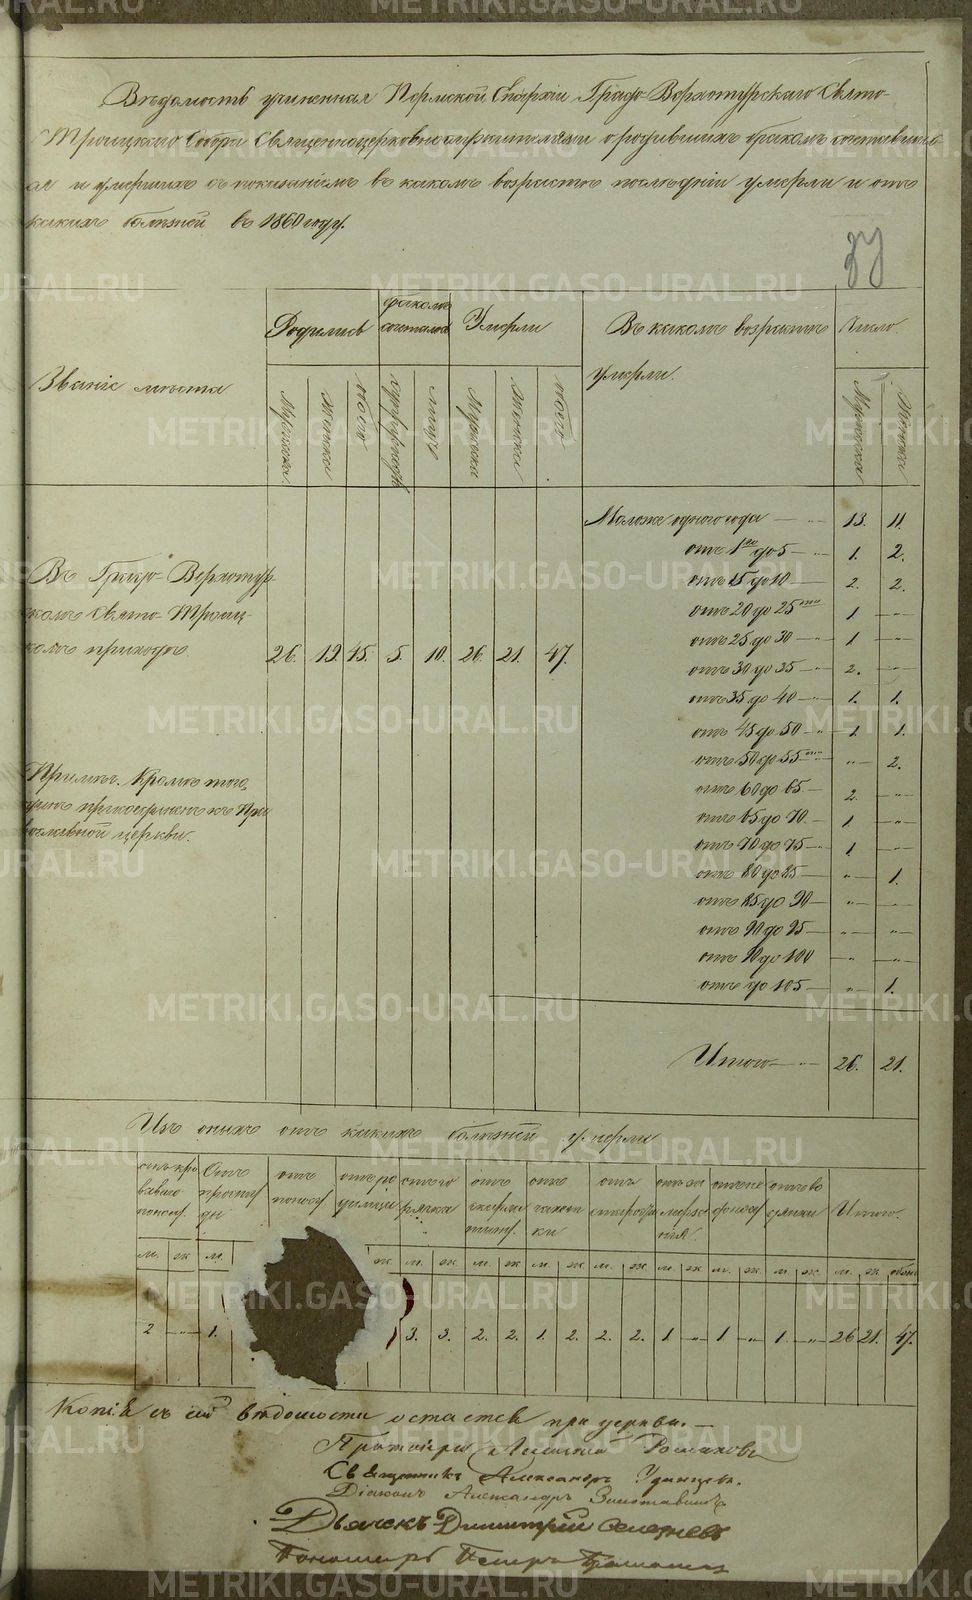 Вѣдомость учиненная Пермской Епархіи Градо-Верхотурскаго Свято-
Троицкаго Собора Священноцерковнослужителями о родившихся бракомъ сочетавших-
ся и умершихъ съ показаніемъ въ какомъ возрастѣ послѣдніи умерли и отъ
какихъ болѣзней въ 1860 году.
Званіе мѣста
Родились
бракомъ сочетались
Умерли
Въ какомъ возрастѣ умерли.
Число.
Мужеска
Женска
обоего
супружествъ
лицъ
Мужеска
Женска
обоего
Мужеска
Женска
Въ Градо-Верхотур-
скомъ Свято-Троиц-
комъ приходѣ. 26. 19. 45. 5. 10. 26. 21. 47.
Примѣч. Кромѣ того,
присоединенъ къ Пра
вославной церкви.
Моложе одного года — " — 13. 11.
отъ 1го до 5 — " 1. 2.
отъ 5 до 10 — " 2. 2.
отъ 20 до 25 1. "
отъ 25 до 30 — 1 "
отъ 30 до 35 — " 2. "
отъ 35 до 40 — " 1. 1.
отъ 45 до 50 — " 1. 1.
отъ 50 до 55 " 2.
отъ 60 до 65 — 2. "
отъ 65 до 70. — 1. "
отъ 70 до 75 — " 1. "
отъ 80 до 85 — " 1.
отъ 85 до 90 — " "
отъ 90 до 95 — " "
отъ 90 до 100 " "
отъ до 105 — " 1.
Итого — " — 26. 21.
Изъ оныхъ отъ какихъ болѣзней умерли
Отъ простуды
отъ поноса
отъ родимца
отъ горячка
отъ чахотки
отъ старости
отъ водянки
Итого.
м. ж м. ж. м. ж. м. ж м. ж. м. ж м ж м. ж. м ж. м. ж. обоего
2 " 1. 3. 3. 2. 2. 1. 2. 2. 2. 1. " 1 " 1. " 26 21. 47.
Копія съ сей вѣдомости остается при церкви. —
Протоіерей Романовъ
Священникъ Александръ Удинцевъ.
Діаконъ Александръ
Дьячекъ Димитрій Селезневъ
Пономарь Петръ
METRIKI.GASO-URAL.RU